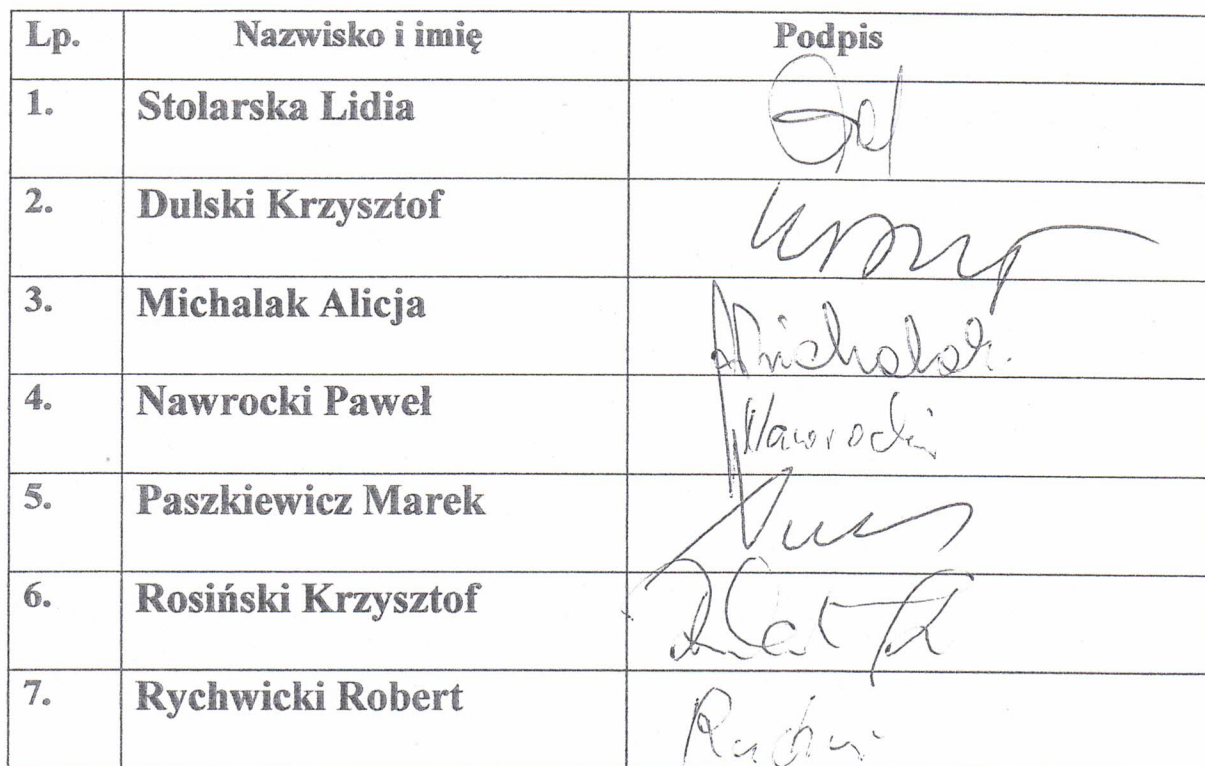 Lp. Nazwisko i imię Podpis
1. Stolarska Lidia
2. Dulski Krzysztof
3. Michalak Alicja AMichalak
4. Nawrocki Paweł Nawrocki
5. Paszkiewicz Marek
6. Rosiński Krzysztof
7. Rychwicki Robert